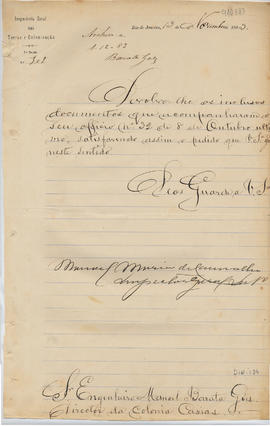 Inspectoria Geral
DAS
Terras e Colonisação
Nº 202
Rio de Janeiro, 13 de Novembro 1883
Archive-se
1-12-83
Barata Goes
Devolvo-lhe os inclusos
documentos que acompanharão o
seu officio nº 32 de 8 de Outubro ulti
mo, satisfazendo assim o pedido que V. S. fez
neste sentido.
Deos Guarde a V. S.
Manoel Maria de Carvalho
Inspector Geral
Sr. Engenheiro Manoel Barata Góes
Director da Colonia Caxias.